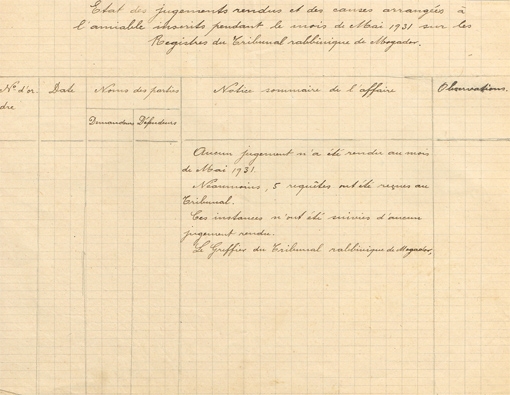 Etat des jugements rendus et des causes arrangées à
l'amiable inscrits pendant le mois de Mai 1931 sur les
Registres du Tribunal rabbinique de Mogador.
N° d'or-
dre
Date
Noms des parties
Demandeurs
Défendeurs
Notice sommaire de l'affaire
Observations.
Aucun jugement n'a été rendu au mois
de Mai 1931.
Néanmoins, 5 requêtes ont été reçues au
Tribunal.
Ces instances n'ont été suivies d'aucun
jugement rendu.
Le Greffier du Tribunal rabbinique de Mogador,